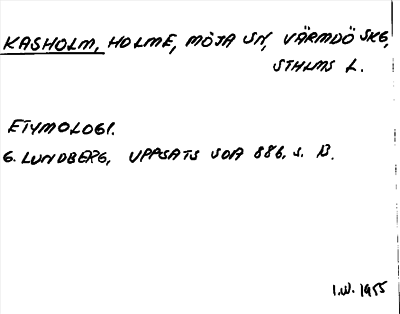 KASHOLM, HOLME, MÖJA SN, VÄRMDÖ SKG,
STHLMS L.
ETYMOLOGI.
G. LUNDBERG, UPPSATS SOA 886, S. 13.
I.W. 1955